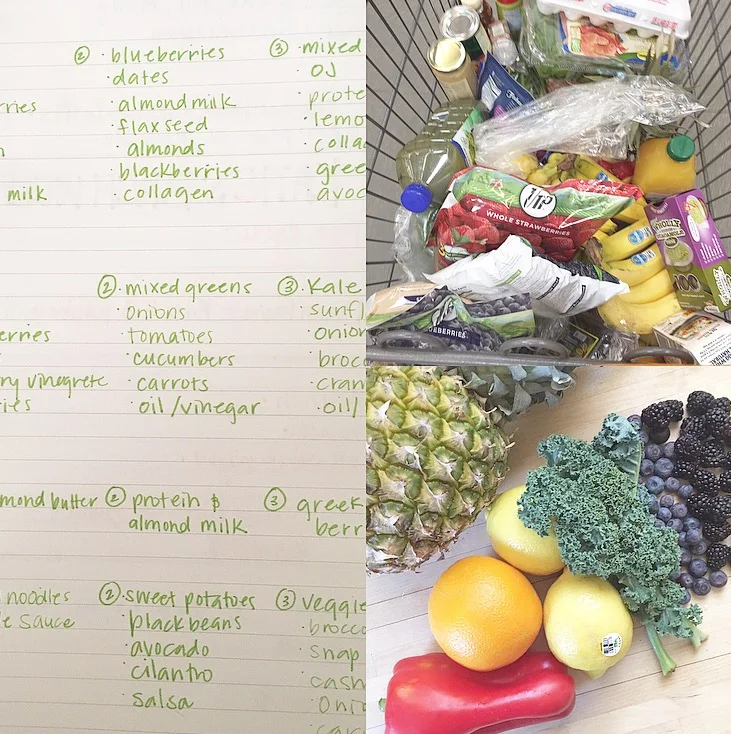 ② · blueberries ③ · mixed
· dates · OJ
rries · almond milk · prote
· flaxseed · lemo
· almonds · colla
· blackberries · gree
milk · collagen · avoc
② · mixed greens ③ · Kale
· onions · sunfl
erries · tomatoes · onion
· cucumbers · broc
ry vinegrete · carrots · cran
ries · oil/vinegar · oil/
mond butter ② protein & ③ greek
almond milk berr
noodles ② · sweet potatoes ③ veggie
e sauce · black beans · brocco
· avocado · snap
· cilantro · cash
· salsa · onio
VIP
WHOLE STRAWBERRIES
WHOLLY
GUACAMOLE
100
BLUEBERRIES